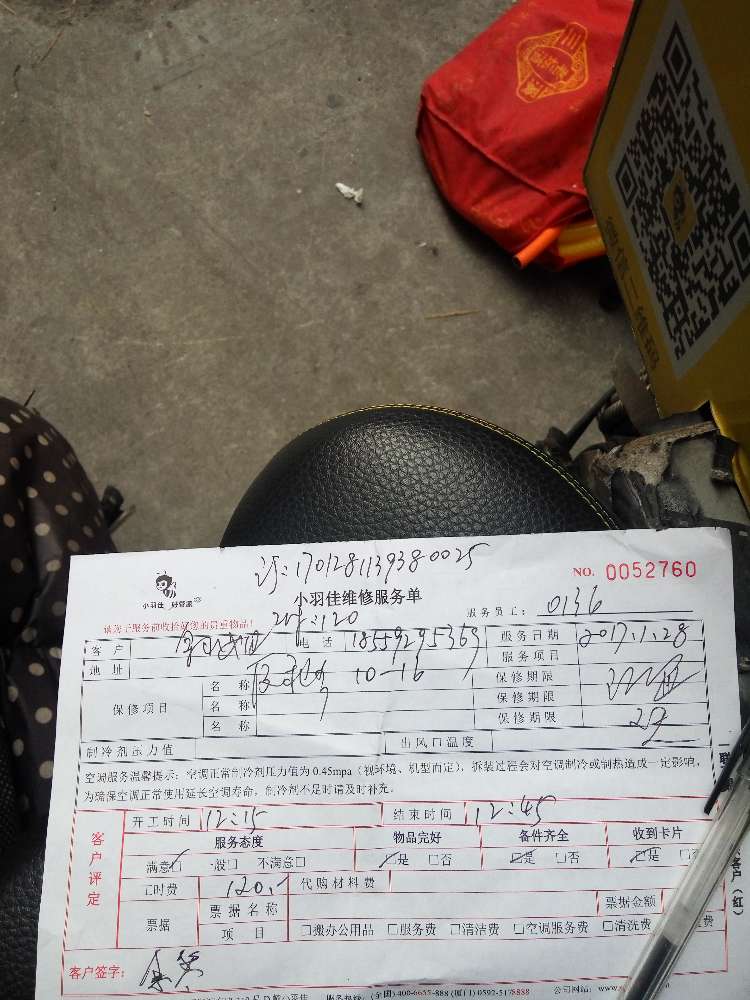 小羽佳 好管家
170128113938-0025
小羽佳维修服务单
NO. 0052760
请您于服务前收拾好您的贵重物品!
服务员工: 0136
客户
电话 18559295369
服务日期 2017.1.28
地址
10-16
服务项目
保修项目
名称
保修期限
名称
保修期限
名称
保修期限
制冷剂压力值
出风口温度
空调服务温馨提示: 空调正常制冷剂压力值为 0.45mpa (视环境、机型而定), 拆装过程会对空调制冷或制热造成一定影响,
为确保空调正常使用延长空调寿命, 制冷剂不足时请及时补充。
客户评定
开工时间 12:15
结束时间 12:45
服务态度 物品完好 备件齐全 收到卡片
满意□ 一般□ 不满意□ □是 □否 □是 □否 □是 □否
工时费 120.-
代购材料费
票据
票据名称
票据金额
项目 □搬办公用品 □服务费 □清洁费 □空调服务费 □清洗费
客户(红)
客户签字:
400-6657-888 (厦门) 0592-5178888
公司网站: